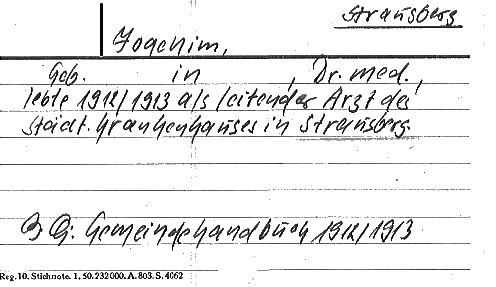 Strausberg
Joachim,
Geb. in , Dr. med.,
lebte 1912/1913 als leitender Arzt des
städt. Krankenhauses in Strausberg.
B G: Gemeindehandbuch 1912/1913
Reg. 10. Stichnote. 1. 50. 232000. A. 803. S. 4062